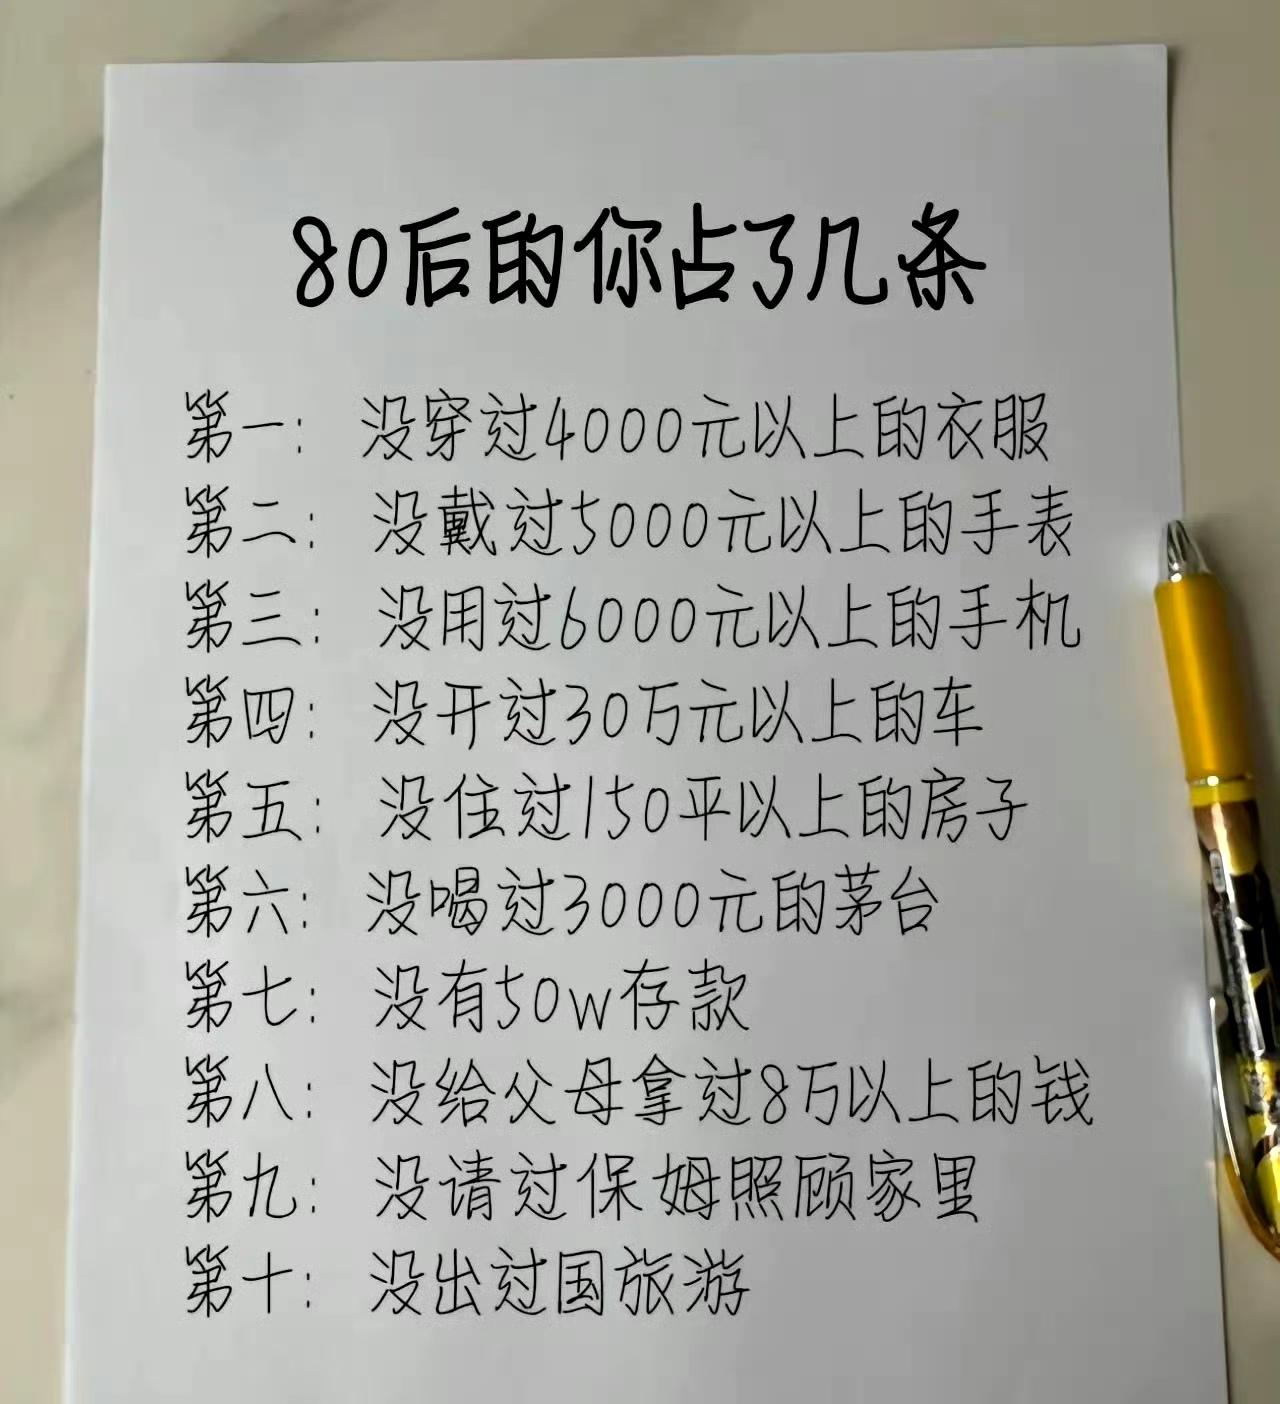 80后的你占了几条
第一: 没穿过4000元以上的衣服
第二: 没戴过5000元以上的手表
第三: 没用过6000元以上的手机
第四: 没开过30万元以上的车
第五: 没住过150平以上的房子
第六: 没喝过3000元的茅台
第七: 没有50w存款
第八: 没给父母拿过8万以上的钱
第九: 没请过保姆照顾家里
第十: 没出过国旅游